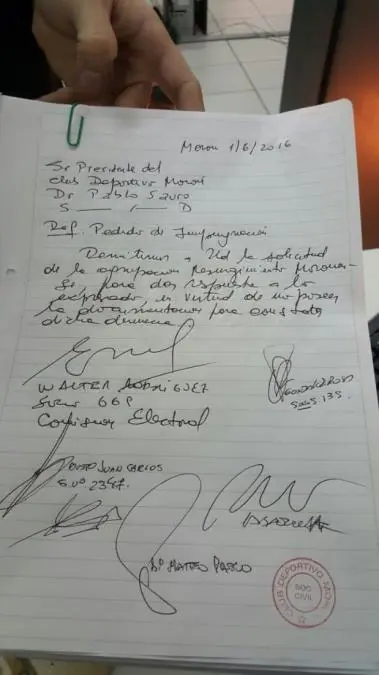 Moron 1/6/2016
Sr Presidente del
Club Deportivo Morón
Dr Pablo Sauro
S ___ / ___ D
Ref. Pedido de Impugnación
Remitimos a Ud la solicitud
de la agrupacion Resurgimiento Moronen-
se, para dar respuesta a lo
expresado, en virtud de no poseer
la documentacion para constatar
dicha denuncia
WALTER RODRIGUEZ
Socio 669
Comision Electoral
SOCIO 135
JUAN CARLOS
S. Nº 2347.
Di MATTEO PABLO
CLUB DEPORTIVO MORON
SOC
CIVIL